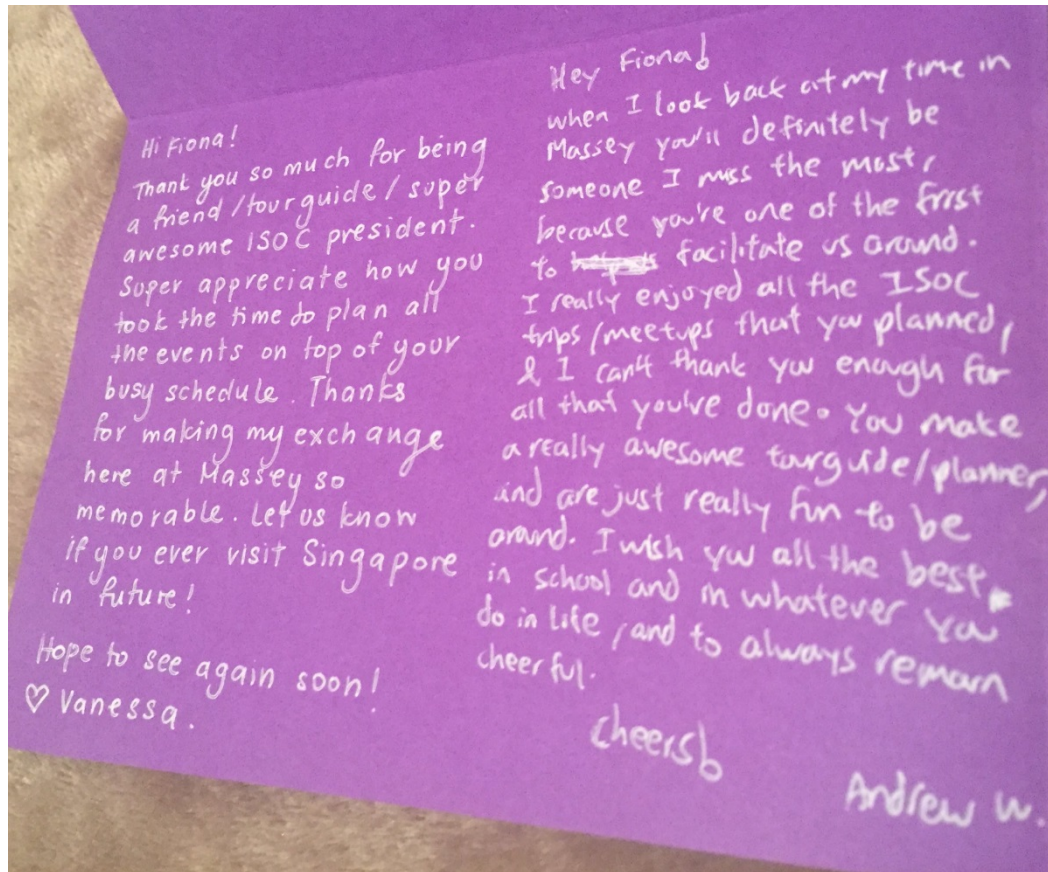 Hi Fiona!
Thank you so much for being
a friend/tour guide/super
awesome ISOC president.
Super appreciate how you
took the time to plan all
the events on top of your
busy schedule. Thanks
for making my exchange
here at Massey so
memorable. Let us know
if you ever visit Singapore
in future!
Hope to see again soon!
♡ Vanessa.
Hey Fiona!
when I look back at my time in
Massey you'll definitely be
someone I miss the most,
because you're one of the first
to facilitate us around.
I really enjoyed all the ISOC
trips/meetups that you planned,
& I can't thank you enough for
all that you've done. You make
a really awesome tourguide/planner,
and are just really fun to be
around. I wish you all the best
in school and in whatever you
do in life, and to always remain
cheerful.
Cheers!
Andrew W.